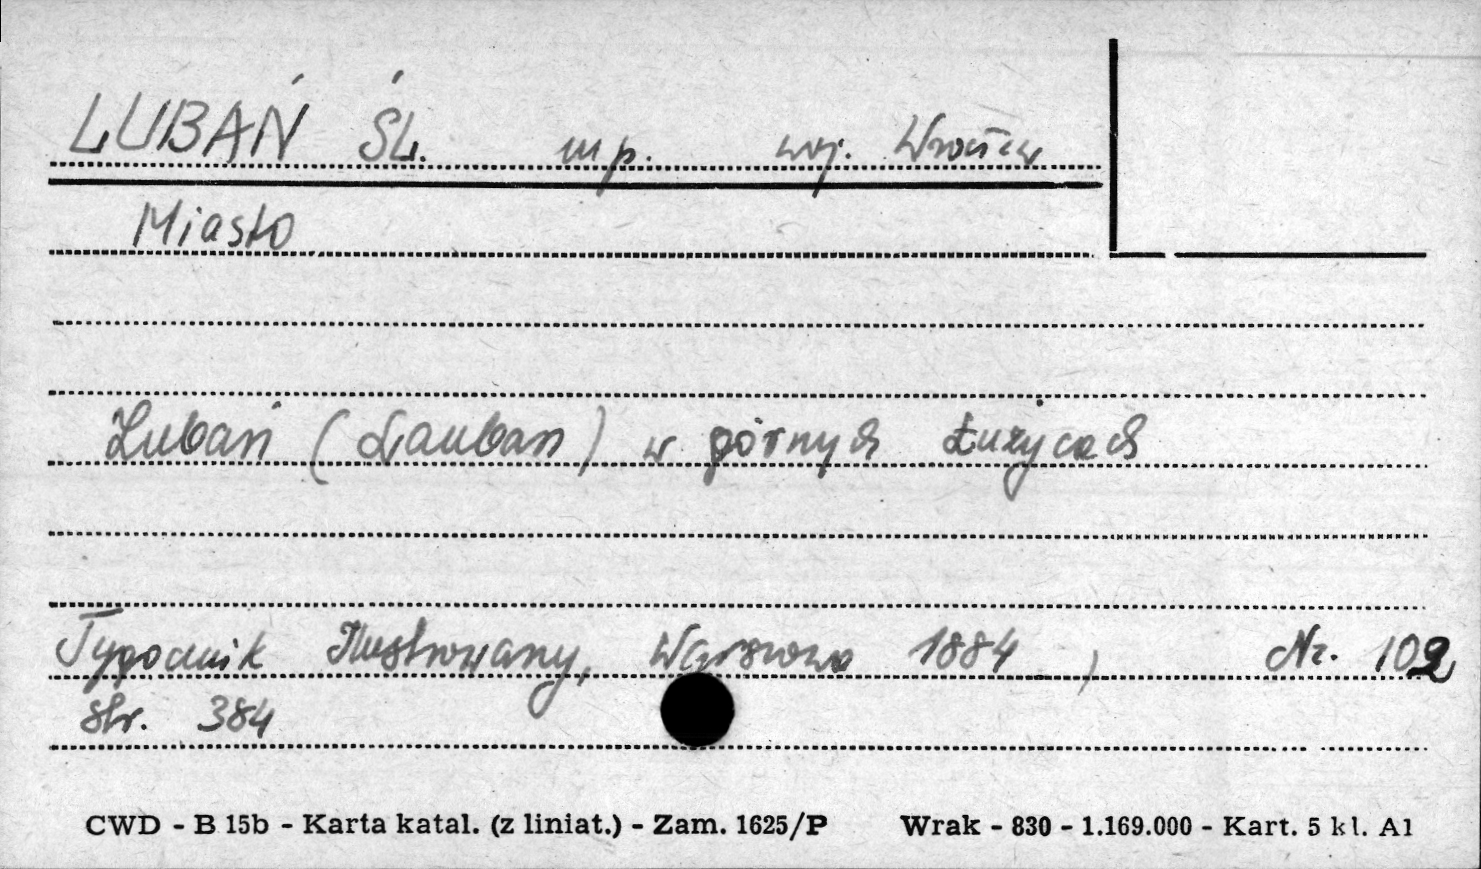 LUBAŃ ŚL. mp. woj. Wrocław
Miasto
Lubań (Lauban) w górnych Łużycach
Tygodnik Ilustrowany, Warszawa 1884, Nr. 102
str. 384
CWD - B 15b - Karta katal. (z liniat.) - Zam. 1625/P Wrak - 830 - 1.169.000 - Kart. 5 kl. A1